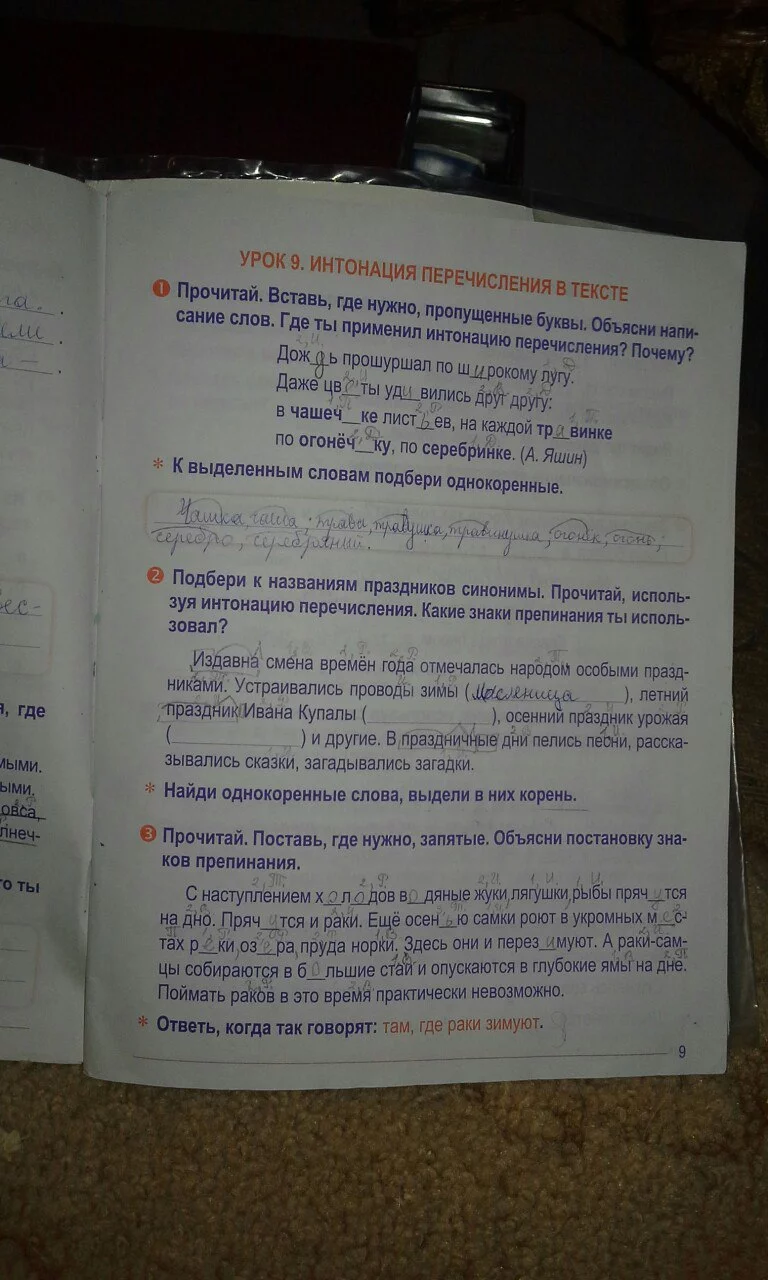 та. .
ели .
а — .
ес-
я, где
мыми.
ыми,
овса,
лнеч-
го ты
УРОК 9. ИНТОНАЦИЯ ПЕРЕЧИСЛЕНИЯ В ТЕКСТЕ
1 Прочитай. Вставь, где нужно, пропущенные буквы. Объясни напи-
сание слов. Где ты применил интонацию перечисления? Почему?
Дождь прошуршал по широкому лугу.
Даже цветы удивились друг другу:
в чашеч__ке листьев, на каждой травинке
по огонёч__ку, по серебринке. (А. Яшин)
* К выделенным словам подбери однокоренные.
Чашка, чаша; трава, травушка, травинушка; огонёк, огонь;
серебро, серебряный.
2 Подбери к названиям праздников синонимы. Прочитай, исполь-
зуя интонацию перечисления. Какие знаки препинания ты исполь-
зовал?
Издавна смена времён года отмечалась народом особыми празд-
никами. Устраивались проводы зимы (масленица), летний
праздник Ивана Купалы (____________), осенний праздник урожая
(____________) и другие. В праздничные дни пелись песни, расска-
зывались сказки, загадывались загадки.
* Найди однокоренные слова, выдели в них корень.
3 Прочитай. Поставь, где нужно, запятые. Объясни постановку зна-
ков препинания.
С наступлением холодов водяные жуки, лягушки, рыбы прячутся
на дно. Прячутся и раки. Ещё осенью самки роют в укромных мес-
тах реки, озера, пруда норки. Здесь они и перезимуют. А раки-сам-
цы собираются в большие стаи и опускаются в глубокие ямы на дне.
Поймать раков в это время практически невозможно.
* Ответь, когда так говорят: там, где раки зимуют.
9